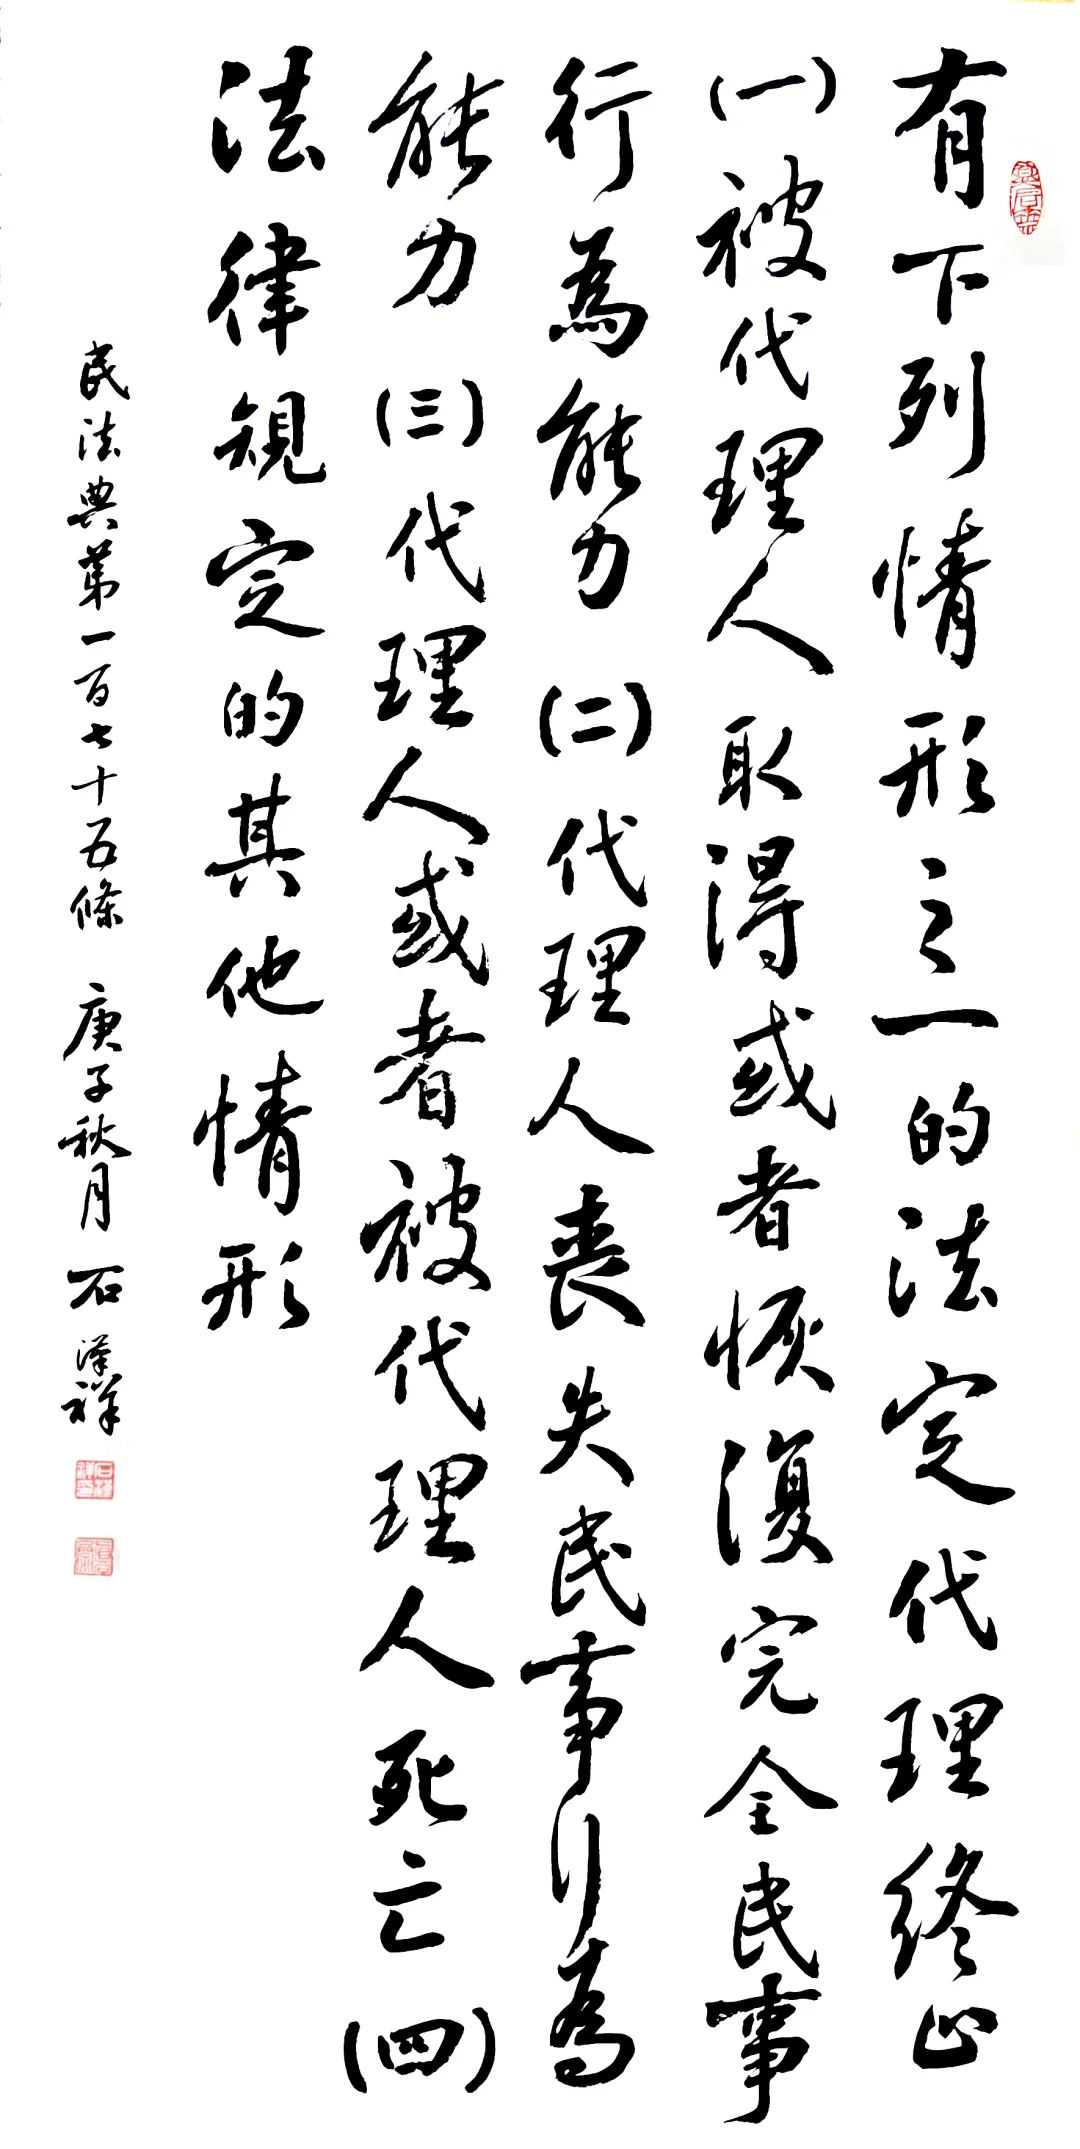 有下列情形之一的法定代理終止
(一)被代理人取得或者恢復完全民事
行為能力(二)代理人喪失民事行為
能力(三)代理人或者被代理人死亡(四)
法律規定的其他情形
民法典第一百七十五條 庚子秋月 石漢祥